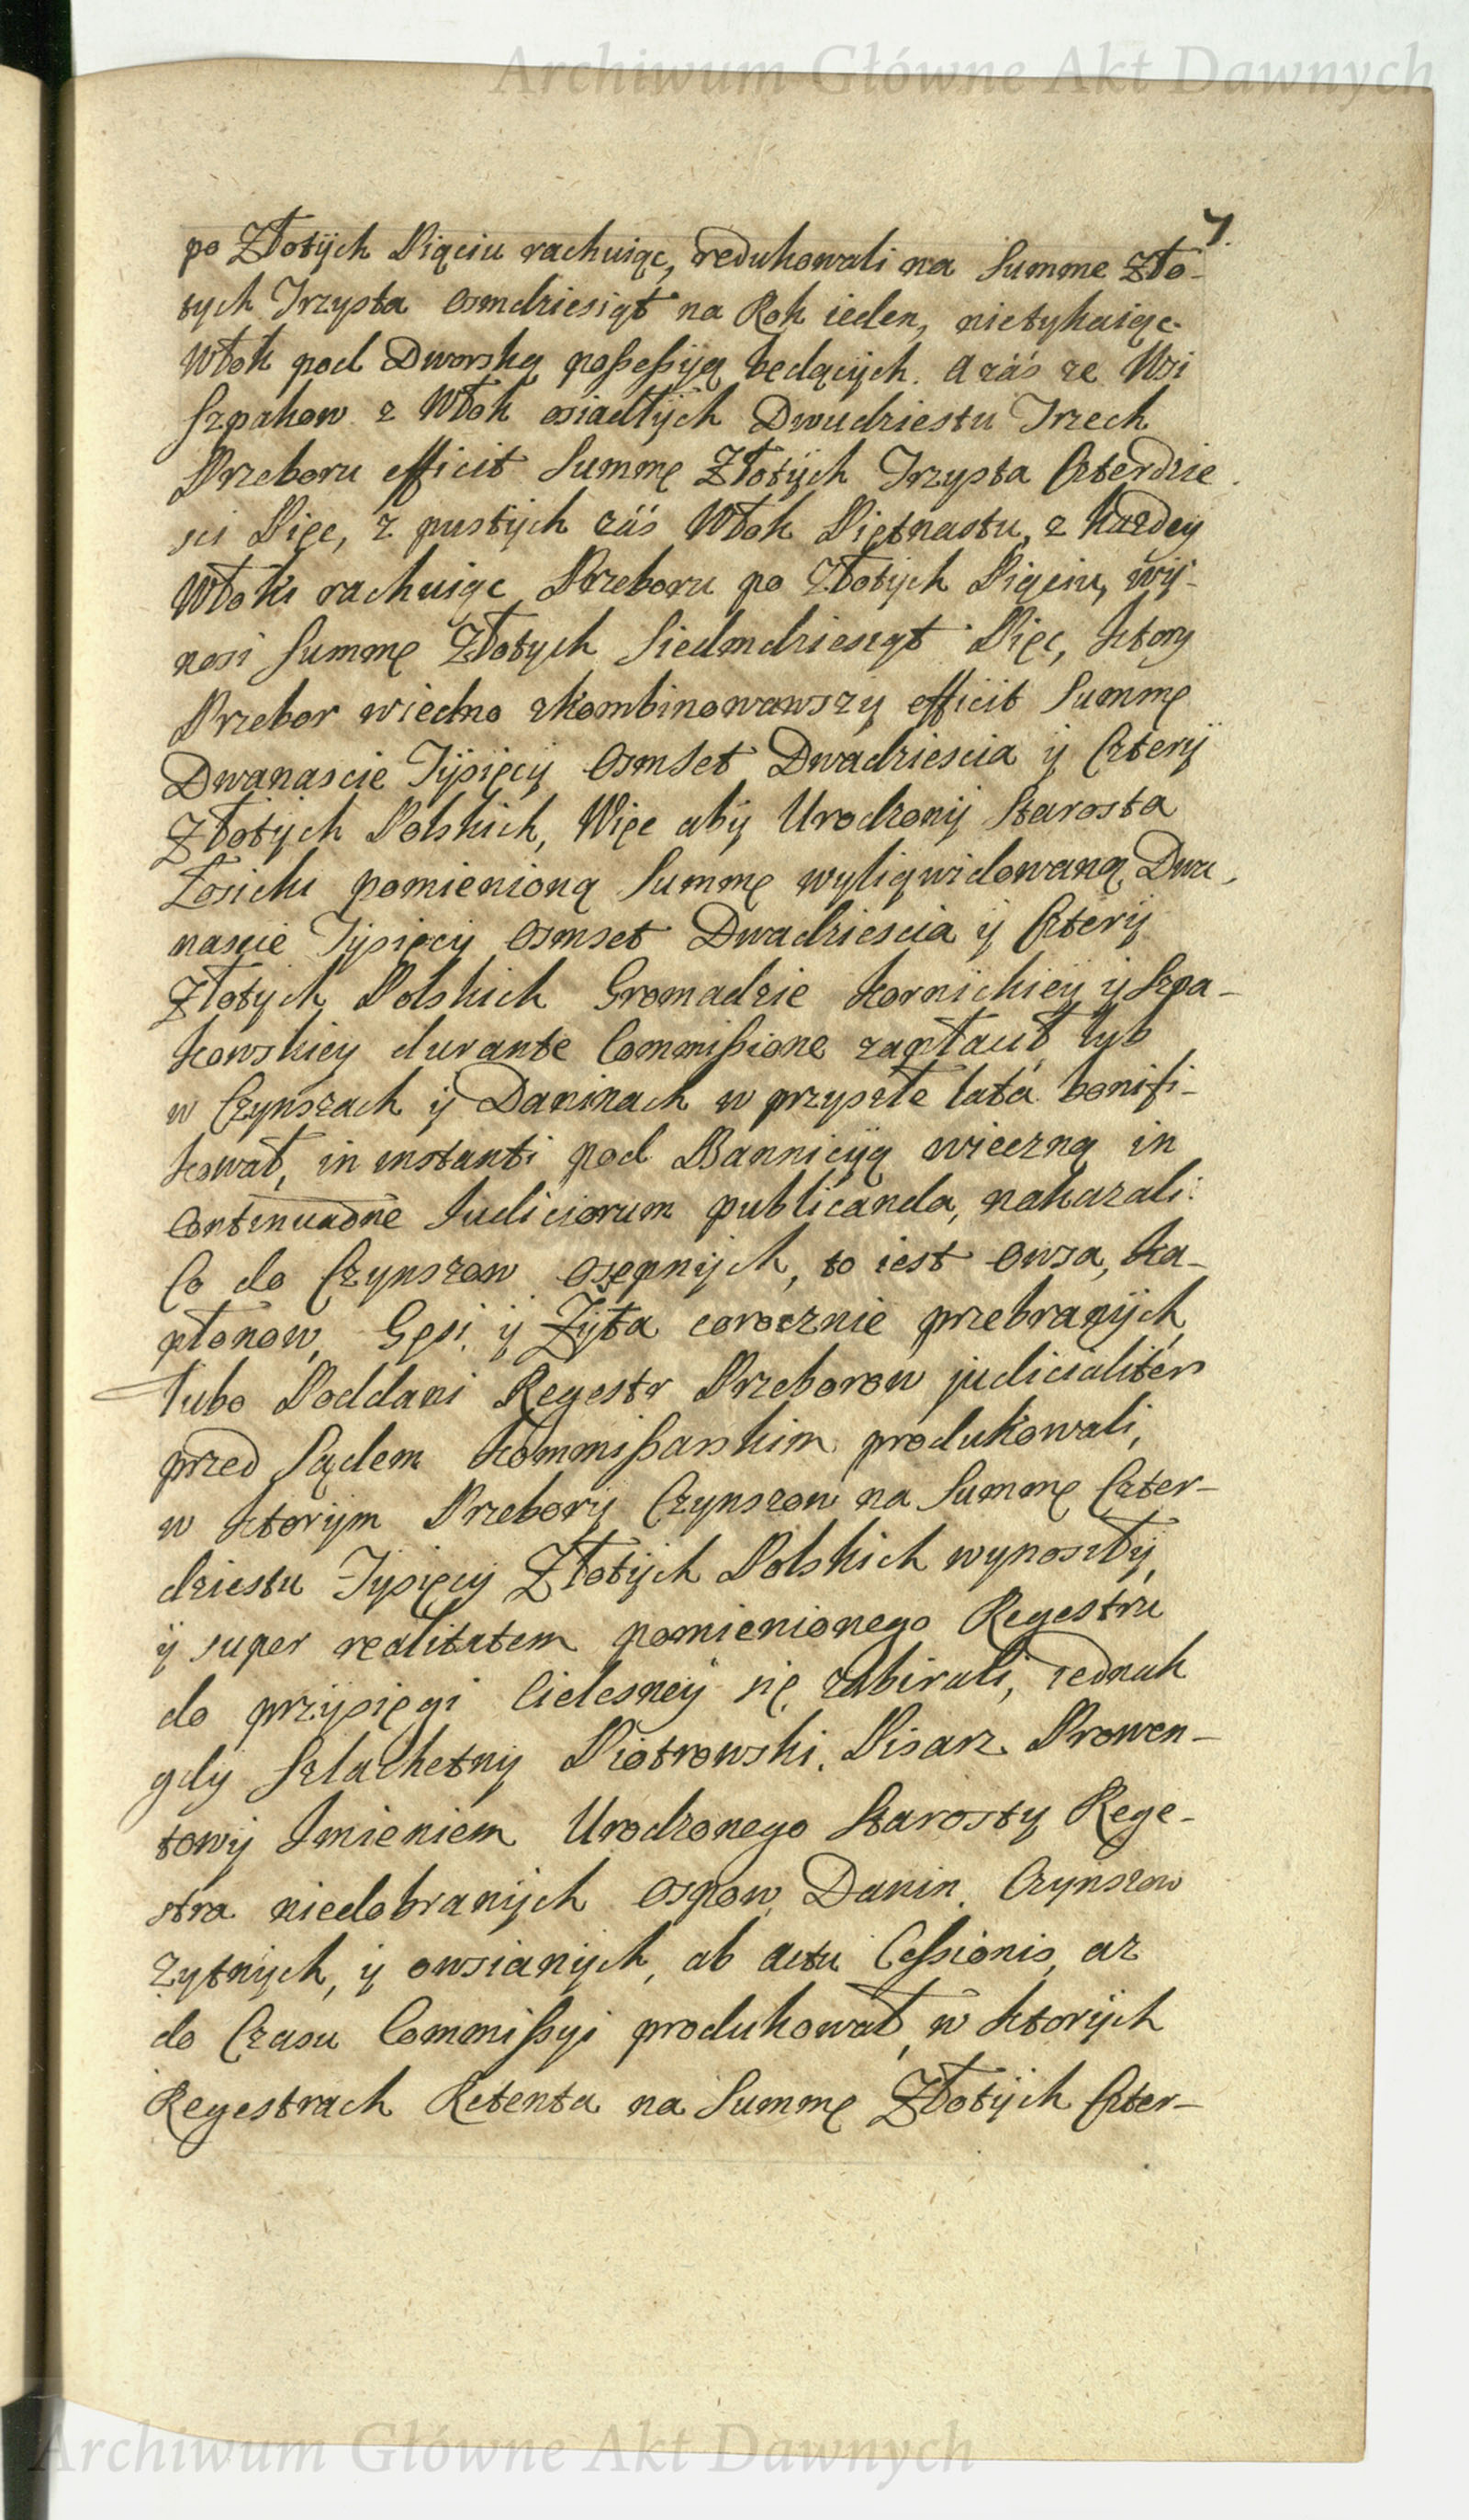 Archiwum Główne Akt Dawnych
7.
po Złotÿch Piąciu rachuiąc, redukowali na Summe Zło-
tych Trzysta osmdziesiąt na Rok ieden, nietykaiąc
Włok pod Dworską poßeßÿą będącÿch. A záś ze Wsi
Szpakow z Włok osiadłÿch Dwudziestu Trzech
Przeboru efficit Summę Złotÿch Trzysta Czterdzie
sci Pięc, z pustÿch záś Włok Piętnastu, z każdey
Włoki rachuiąc Przeboru po Złotÿch Piąciu, wÿ-
nosi Summę Złotych Siedmdziesiąt Pięc, ktory
Przebor wiedno zkombinowawszÿ efficit Summę
Dwanascie Tÿsięcÿ Osmset Dwadziescia ÿ Czterÿ
Złotÿch Polskich, Więc abÿ Urodzonÿ Starosta
Łosicki pomienioną Summę wyliqwidowaną Dwa,
nascie Tÿsięcÿ Osmset Dwadziescia ÿ Czterÿ
Złotych Polskich Gromadzie Kornickieÿ ÿ Szpa-
kowskiey durante Commißione zapłacił lub
w Czynszach ÿ Daninach w przyszłe lata bonifi-
kował, in instanti pod Bannicÿą wieczną in
continuaōne Iudiciorum publicanda, nakazali:
Co do Czynszow osępnÿch, to iest Owsa, ka-
płonow, Gęsi ÿ Żÿta corocznie przebranÿch,
lubo Poddani Regestr Przeborow judicialiter
przed Sądem Kommißarskim produkowali,
w ktorÿm Przeborÿ Czynszow na Summę Czter-
dziestu Tysięcy Złotÿch Polskich wynosiłÿ,
ÿ super realitatem pomienionego Regestru
do przÿsięgi Cielesneÿ się zabirali, iednak
gdÿ Szlachetny Piotrowski, Pisarz Prowen-
towÿ Imieniem Urodzonego Starosty Rege-
stra niedobranÿch Ospow, Danin, Czynszow
Zytnÿch, ÿ owsianÿch, ab actu Ceßionis, az
do Czasu Commißyi produkował, w ktorÿch
Regestrach Retenta na Summę Złotÿch Czter-
Archiwum Główne Akt Dawnych